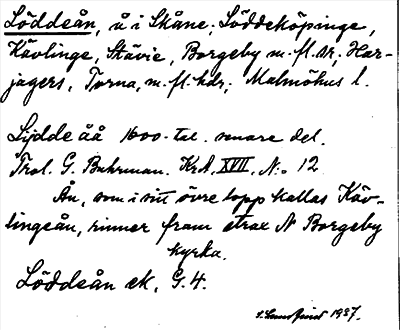 Löddeån, å i Skåne; Löddeköpinge,
Kävlinge, Stävie, Borgeby m. fl. sr; Har-
jagers, Torna, m. fl. hdr; Malmöhus l.
Lydde åå 1600-tal. senare del.
Trol. G. Buhrman. KrA, XVII, N:o 12
Ån, som i sitt övre lopp kallas Käv-
lingeån, rinner fram strax N Borgeby
kyrka.
Löddeån ek. G. 4.
1937.